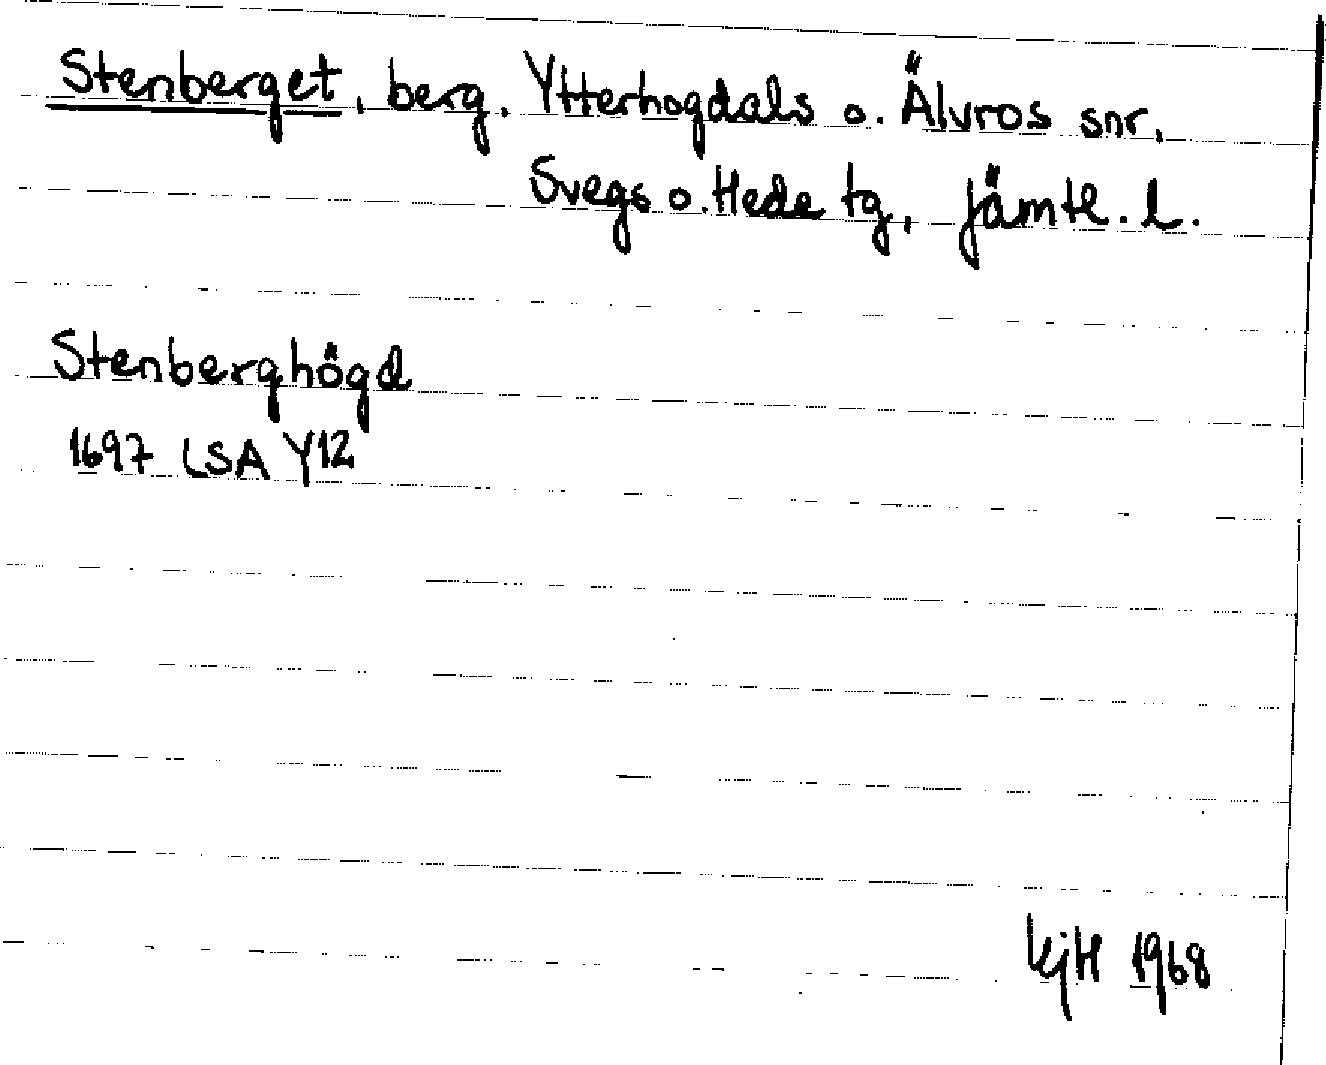 Stenberget, berg. Ytterhogdals o. Älvros snr,
Svegs o. Hede tg, Jämtl. l.
Stenberghögd
1697 LSA Y12
KjH 1968